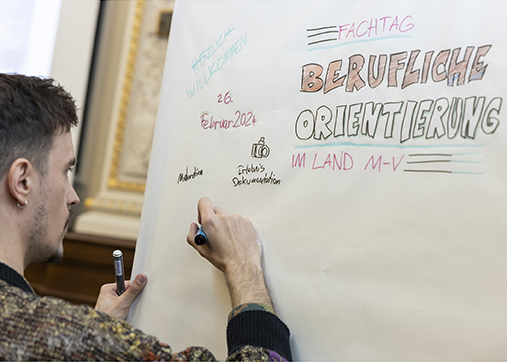 HERZLICH
WILLKOMMEN
FACHTAG
BERUFLICHE
ORIENTIERUNG
IM LAND M-V
26.
Februar 2024
Moderation
Erlebnis
Dokumentation